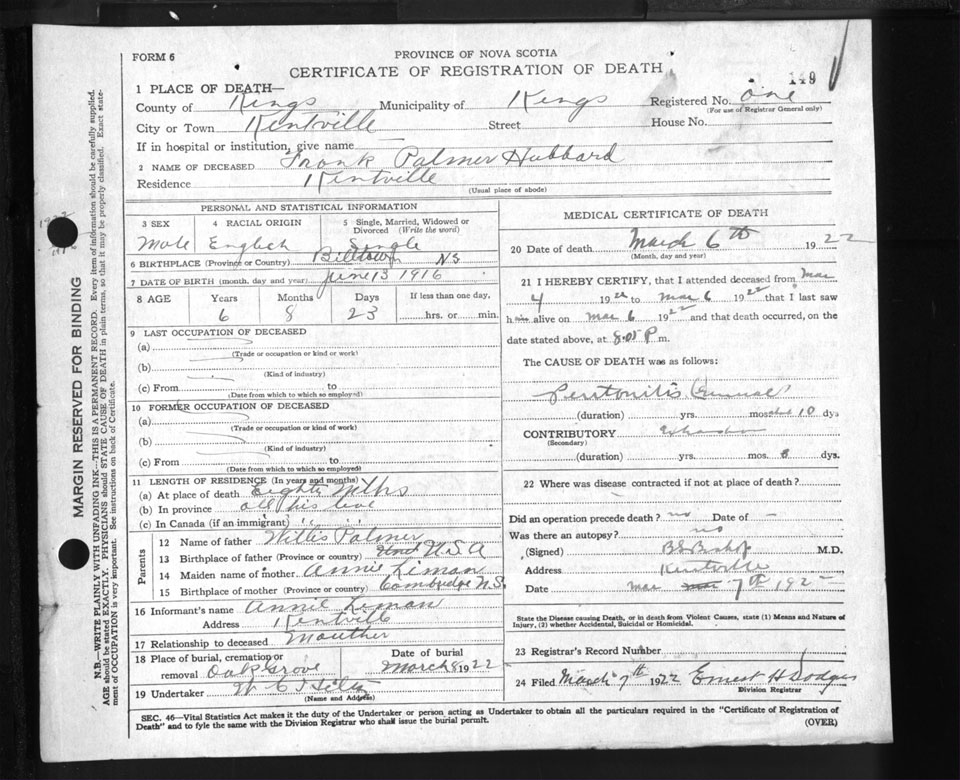 FORM 6
PROVINCE OF NOVA SCOTIA
CERTIFICATE OF REGISTRATION OF DEATH
149
1 PLACE OF DEATH—
County of Kings Municipality of Kings Registered No. one
(For use of Registrar General only)
City or Town Kentville Street House No.
If in hospital or institution, give name
2 NAME OF DECEASED Frank Palmer Hubbard
Residence Kentville
(Usual place of abode)
PERSONAL AND STATISTICAL INFORMATION
3 SEX 4 RACIAL ORIGIN 5 Single, Married, Widowed or Divorced (Write the word)
Male English Single
6 BIRTHPLACE (Province or Country) Billtown N S
7 DATE OF BIRTH (month, day and year) June 13 1916
8 AGE Years Months Days If less than one day,
6 8 23 hrs. or min.
9 LAST OCCUPATION OF DECEASED
(a)
(Trade or occupation or kind or work)
(b)
(Kind of industry)
(c) From to
(Date from which to which so employed)
10 FORMER OCCUPATION OF DECEASED
(a)
(Trade or occupation or kind of work)
(b)
(Kind of industry)
(c) From to
(Date from which to which so employed)
11 LENGTH OF RESIDENCE (In years and months)
(a) At place of death Eighty Mths
(b) In province all his live
(c) In Canada (if an immigrant) " "
Parents
12 Name of father Willis Palmer
13 Birthplace of father (Province or country) U.S.A
14 Maiden name of mother Annie
15 Birthplace of mother (Province or country) Cambridge N.S.
16 Informant's name Annie
Address Kentville
17 Relationship to deceased Mouther
18 Place of burial, cremation or removal Oak Grove
Date of burial March 8 1922
19 Undertaker
(Name and Address)
MEDICAL CERTIFICATE OF DEATH
20 Date of death March 6th 1922
(Month, day and year)
21 I HEREBY CERTIFY, that I attended deceased from Mar
4 1922 to Mar 6 1922 that I last saw
h alive on Mar 6 1922 and that death occurred, on the
date stated above, at P m.
The CAUSE OF DEATH was as follows:
Peritonitis General
(duration) yrs. mos. 10 dys
CONTRIBUTORY
(Secondary)
(duration) yrs. mos. dys.
22 Where was disease contracted if not at place of death?
Did an operation precede death? no Date of —
Was there an autopsy? no
(Signed) M.D.
Address Kentville
Date Mar 7th 192
State the Disease causing Death, or in death from Violent Causes, state (1) Means and Nature of
Injury, (2) whether Accidental, Suicidal or Homicidal.
23 Registrar's Record Number
24 Filed March 7th 1922 Ernest H Dodge
Division Registrar
SEC. 46—Vital Statistics Act makes it the duty of the Undertaker or person acting as Undertaker to obtain all the particulars required in the "Certificate of Registration of
Death" and to fyle the same with the Division Registrar who shall issue the burial permit.
(OVER)
MARGIN RESERVED FOR BINDING
N.B.—WRITE PLAINLY WITH UNFADING INK—THIS IS A PERMANENT RECORD. Every item of information should be carefully supplied.
AGE should be stated EXACTLY. PHYSICIANS should STATE CAUSE OF DEATH in plain terms, so that it may be properly classified. Exact state-
ment of OCCUPATION is very important. See instructions on back of Certificate.